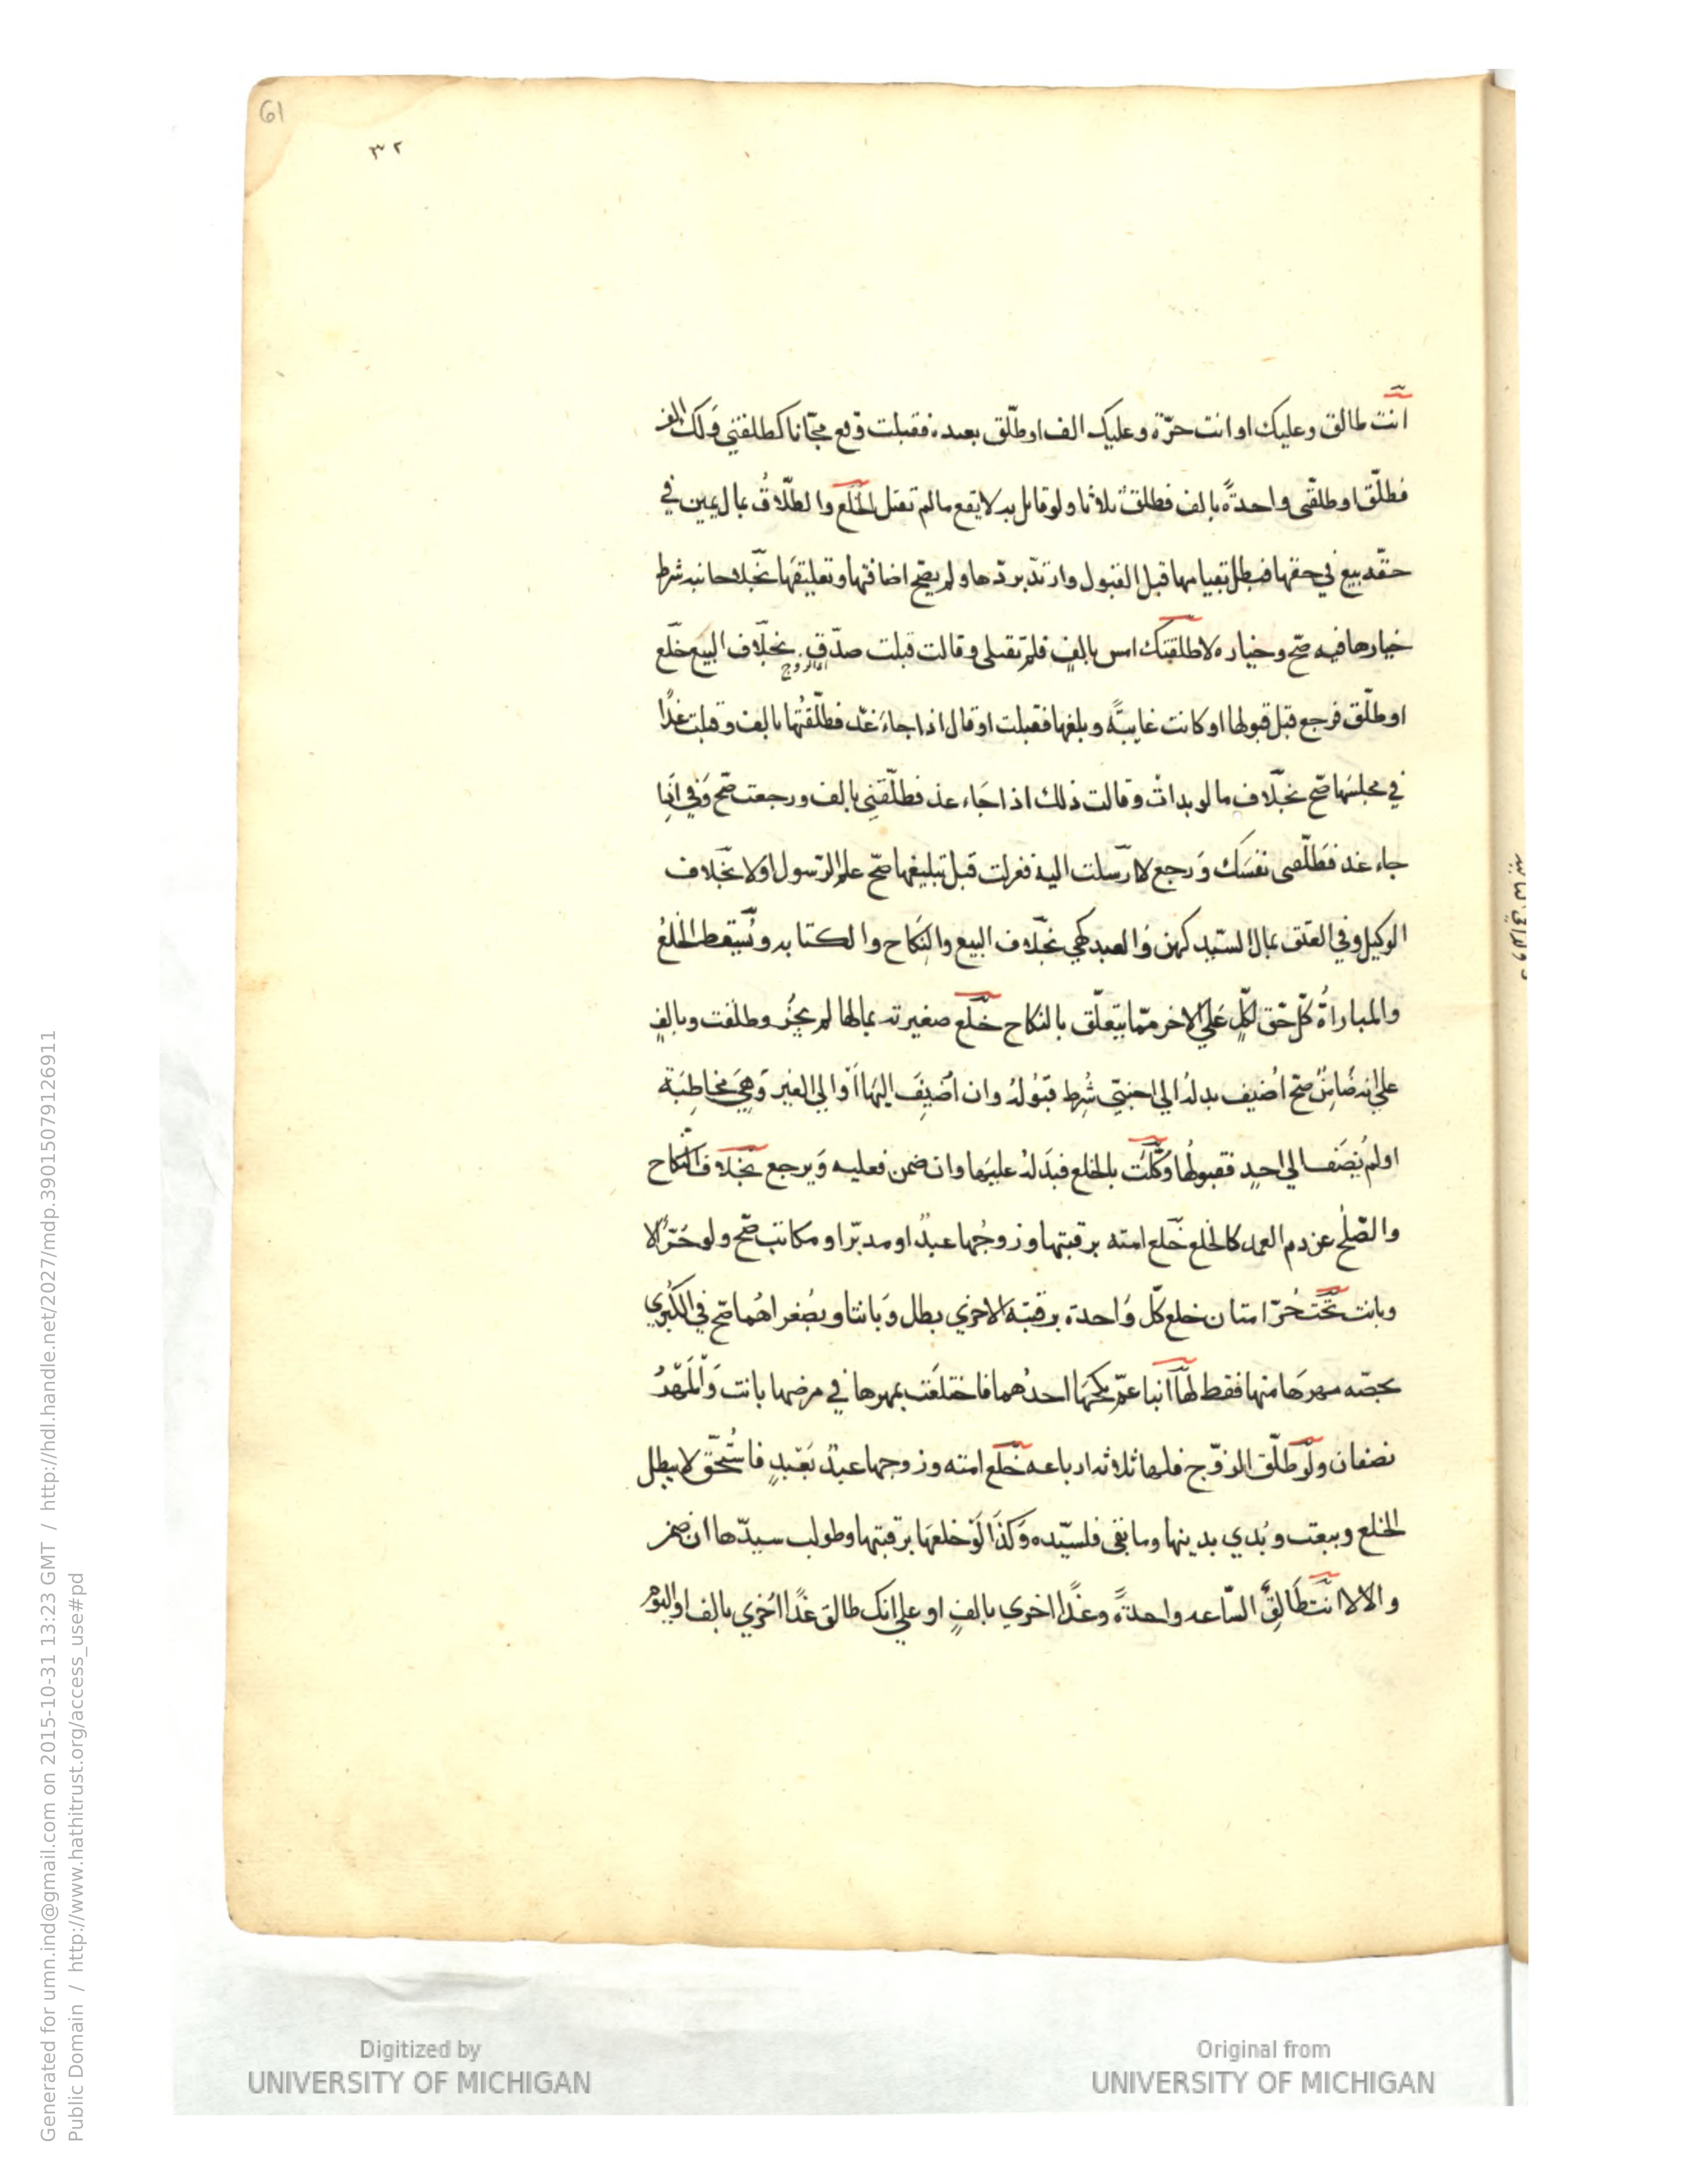 61
٣٢
انت طالق وعليك او انت حرّة وعليك الف او طلّق بعبده فقبلت وقع مجّانا كطلقني ولك الف
فطلّق او طلقي واحدةً بالف فطلقت ثلاثا ولو قابل به لا يقع ما لم تقبل الخلع والطّلاقُ بمال يمين في
حقّه بيع في حقها فبطل بقيامها قبل القبول وارتدّ بردّها ولم يصحّ اضافتها وتعليقها بخلاف جانبه شرط
خيارها فيه صحّ وخياره لا طلقتك امس بالف فلم تقبلي وقالت قبلت صدّق الزوج بخلاف البيع خلع
او طلّق فرجع قبل قبولها او كانت غايبةً وبلغها فقبلت او قال اذا جاءَ غد فطلّقتُها بالف وقبلت غدًا
في مجلسها صحّ بخلاف ما لو بدات وقالت ذلك اذا جَاء غد فطلّقنِي بالف ورجعت صحّ وفي اذا
جاء غد فطلّقي نفسَك وَرجع لا ارسلت اليه فعزلت قبل تبليغها صحّ علم الرّسول اوْلا بخلاف
الوكيل وفي العتق بمال السّيد كهن وَالعبد كهي بخلاف البيع والنكاح والكتابه ويُسقط الخلعُ
والمباراةُ كلّ حّق لكلٍ علي الاخر ممّا يتعلّق بالنكاح خلع صغيرته بمالها لم يجُز وطلقت وبالفٍ
علي انه ضَامِنٌ صحّ اُضيف بدله الي اجنبيّ شُرِط قبُولهُ وان اُضيفَ اليهَا اَوْ الي الغير وَهِيَ مخاطِبَة
او لم يُضَف الي احدٍ فقبولُها وَكّلت بالخلع فبَدَلهُ عليهَا وان ضمن فعليه وَيرجع بخلاف النكاح
والصّلح عن دم العمد كالخلع خلع امته برقبتها وزوجُها عبدٌ او مدبّر او مكاتب صحّ ولو حُرّ لا
وبانت تحت حُرّ امتان خلع كلّ وَاحدة برقبة الاخري بطل وَبانتا وبصُغراهُما صحّ في الكُبري
بحصّه مهرهَا منها فقط لها ابنا عمّ نكحهَا احدُهما فاختلعَت بمهرها في مرضها بانت وَالمَهرُ
نصفان ولو طلّق الزوّج فلها ثلاثه ارباعه خلع امته وزوجها عبدٌ بعَبدٍ فاستُحّق لا يبطل
الخلع وبيعت وبُدي بدينها وما بقي فلسيّده وَكذَا لَوْ خلعهَا برقبتها وطولب سيدّها ان ضمن
والا لا انت طَالِقٌ السّاعه واحدةً وغدًا اخري بالفٍ او علي انك طالق غدًا اُخري بالف او اليوم
Digitized by
UNIVERSITY OF MICHIGAN
Original from
UNIVERSITY OF MICHIGAN
Generated for umn.ind@gmail.com on 2015-10-31 13:23 GMT / http://hdl.handle.net/2027/mdp.39015079126911
Public Domain / http://www.hathitrust.org/access_use#pd